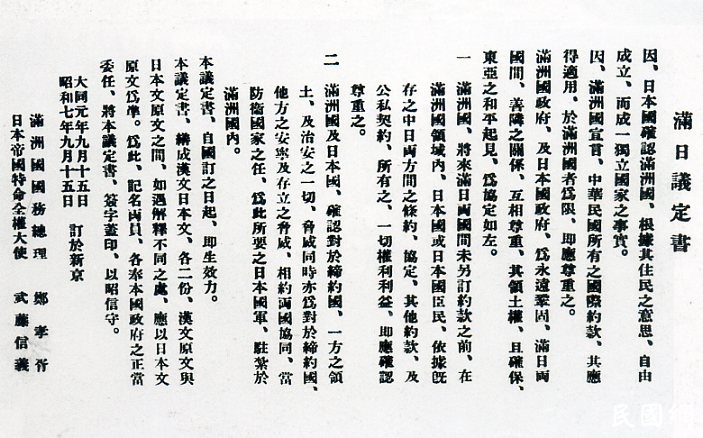 滿日議定書
因、日本國確認滿洲國、根據其住民之意思、自由
成立、而成一獨立國家之事實。
因、滿洲國宣言、中華民國所有之國際約款、其應
得適用、於滿洲國者爲限、即應尊重之。
滿洲國政府、及日本國政府、爲永遠鞏固、滿日兩
國間、善隣之關係、互相尊重、其領土權、且確保、
東亞之和平起見、爲協定如左。
一 滿洲國、將來滿日兩國間未另訂約款之前、在
滿洲國領域內、日本國或日本國臣民、依據旣
存之中日兩方間之條約、協定、其他約款、及
公私契約、所有之、一切權利利益、即應確認
尊重之。
二 滿洲國及日本國、確認對於締約國、一方之領
土、及治安之一切、脅威同時亦爲對於締約國、
他方之安寧及存立之脅威、相約兩國協同、當
防衞國家之任、爲此所要之日本國軍、駐紮於
滿洲國內。
本議定書、自國訂之日起、即生效力。
本議定書、繕成漢文日本文、各二份、漢文原文與
日本文原文之間、如遇解釋不同之處、應以日本文
原文爲準。爲此、記名兩員、各奉本國政府之正當
委任、將本議定書、簽字蓋印、以昭信守。
大同元年九月十五日
昭和七年九月十五日 訂於新京
滿洲國國務總理 鄭孝胥
日本帝國特命全權大使 武藤信義
民國